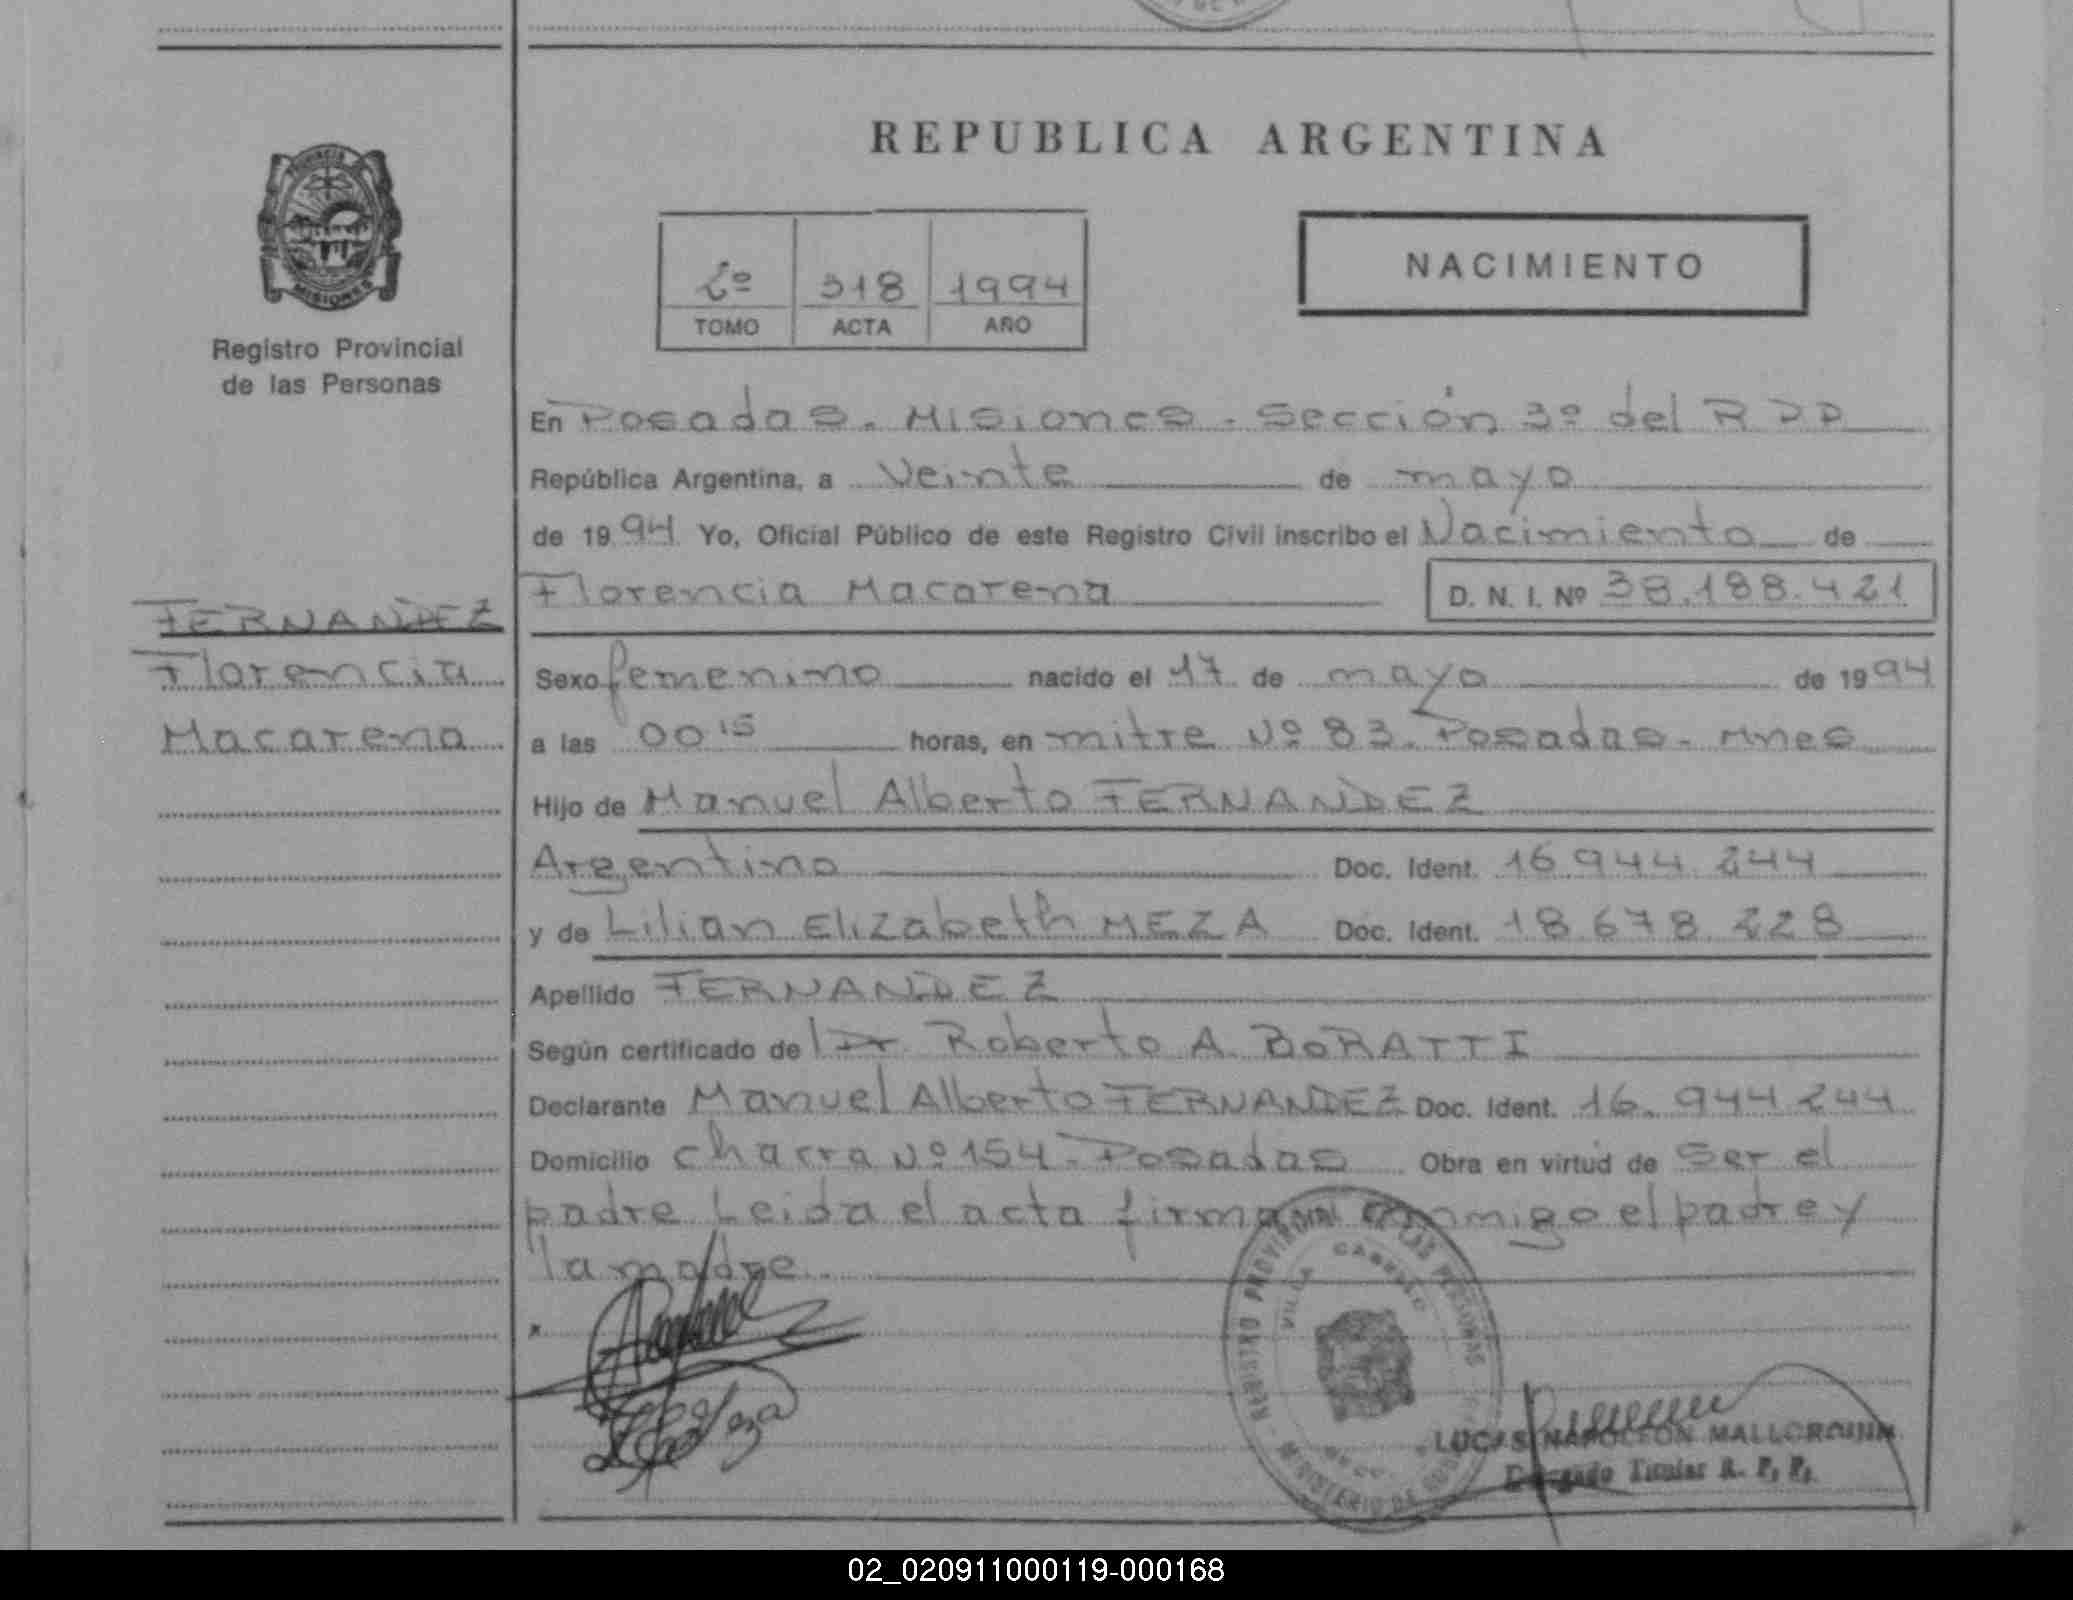 REPUBLICA ARGENTINA
Provincia
MISIONES
Registro Provincial
de las Personas
2º 318 1994
TOMO ACTA AÑO
NACIMIENTO
En Posadas. Misiones. Sección 3º del R P P
República Argentina, a Veinte de mayo
de 1994 Yo, Oficial Público de este Registro Civil inscribo el Nacimiento de
Florencia Macarena D. N. I. Nº 38.188.421
FERNANDEZ
Florencia
Macarena
Sexo femenino nacido el 17 de mayo de 1994
a las 00 15 horas, en mitre Nº 83. Posadas - Mnes
Hijo de Manuel Alberto FERNANDEZ
Argentino Doc. Ident. 16.944.244
y de Lilian Elizabeth MEZA Doc. Ident. 18.678.228
Apellido FERNANDEZ
Según certificado de Dr. Roberto A. BORATTI
Declarante Manuel Alberto FERNANDEZ Doc. Ident. 16.944.244
Domicilio Chacra Nº 154 - Posadas Obra en virtud de Ser el
padre Leida el acta firma conmigo el padre y
la madre
REGISTRO PROVINCIAL DE LAS PERSONAS
VILLA CABELLO
MINISTERIO DE
LUCAS NAPOLEON
Delegado Titular R. P. P.
02_020911000119-000168